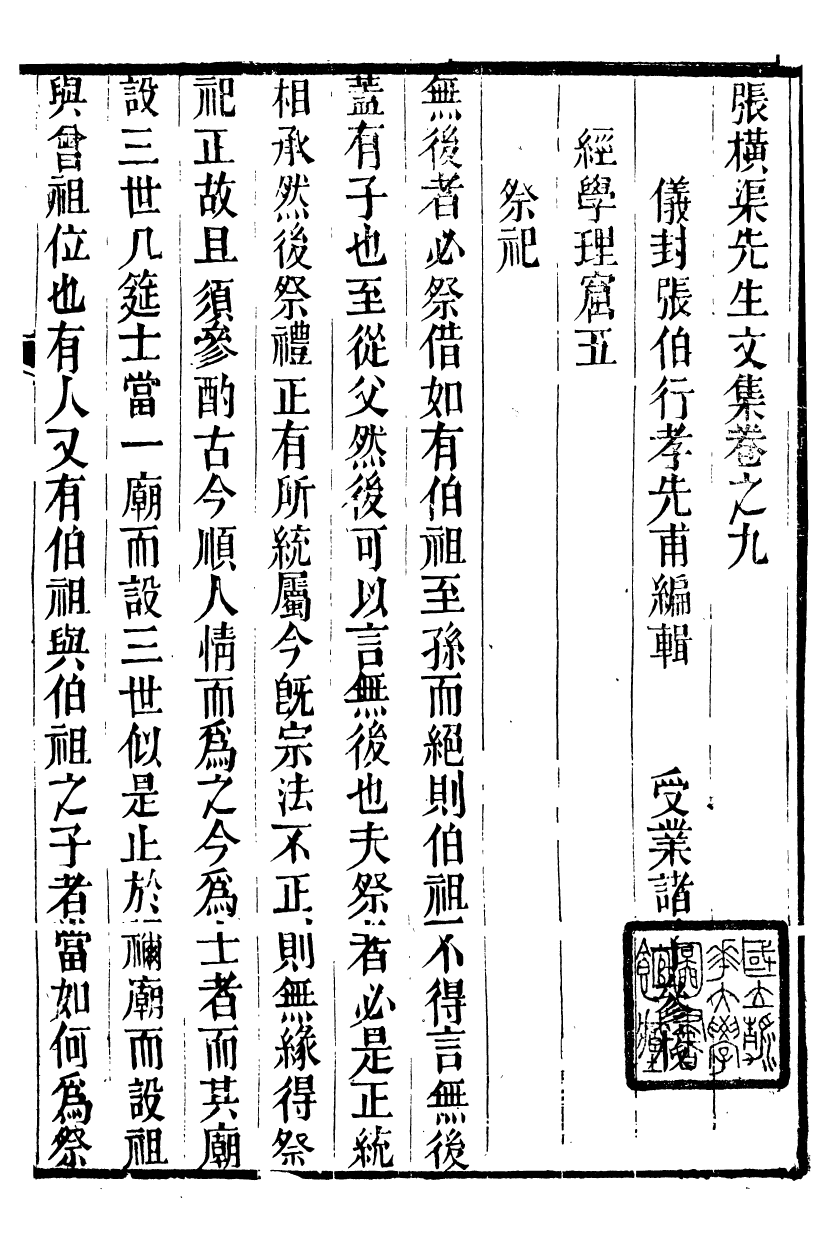 張橫渠先生文集卷之九
儀封張伯行孝先甫編輯　受業諸
經學理窟五
祭祀
無後者必祭借如有伯祖至孫而絕則伯祖不得言無後
蓋有子也至從父然後可以言無後也夫祭者必是正統
相承然後祭禮正有所統屬今旣宗法不正則無緣得祭
祀正故且須參酌古今順人情而爲之今爲士者而其廟
設三世几筵士當一廟而設三世似是止於禰廟而設祖
與曾祖位也有人又有伯祖與伯祖之子者當如何爲祭
國立清華大學圖書館藏